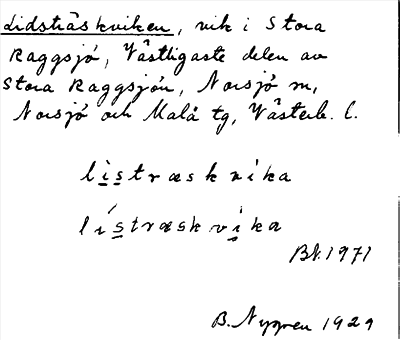 Lidsträskviken, vik i Stora
Raggsjö, Västligaste delen av
Stora Raggsjön, Norsjö sn,
Norsjö och Malå tg, Västerb. l.
listræskvika
lístræskvika
Bt. 1971
B. Nygren 1929